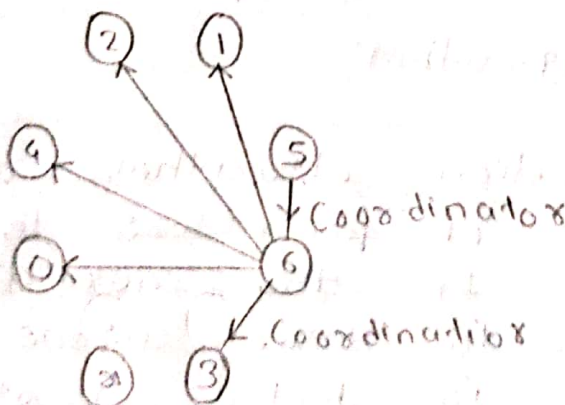 2
1
4
5
Coordinator
0
6
Coordinatior
3